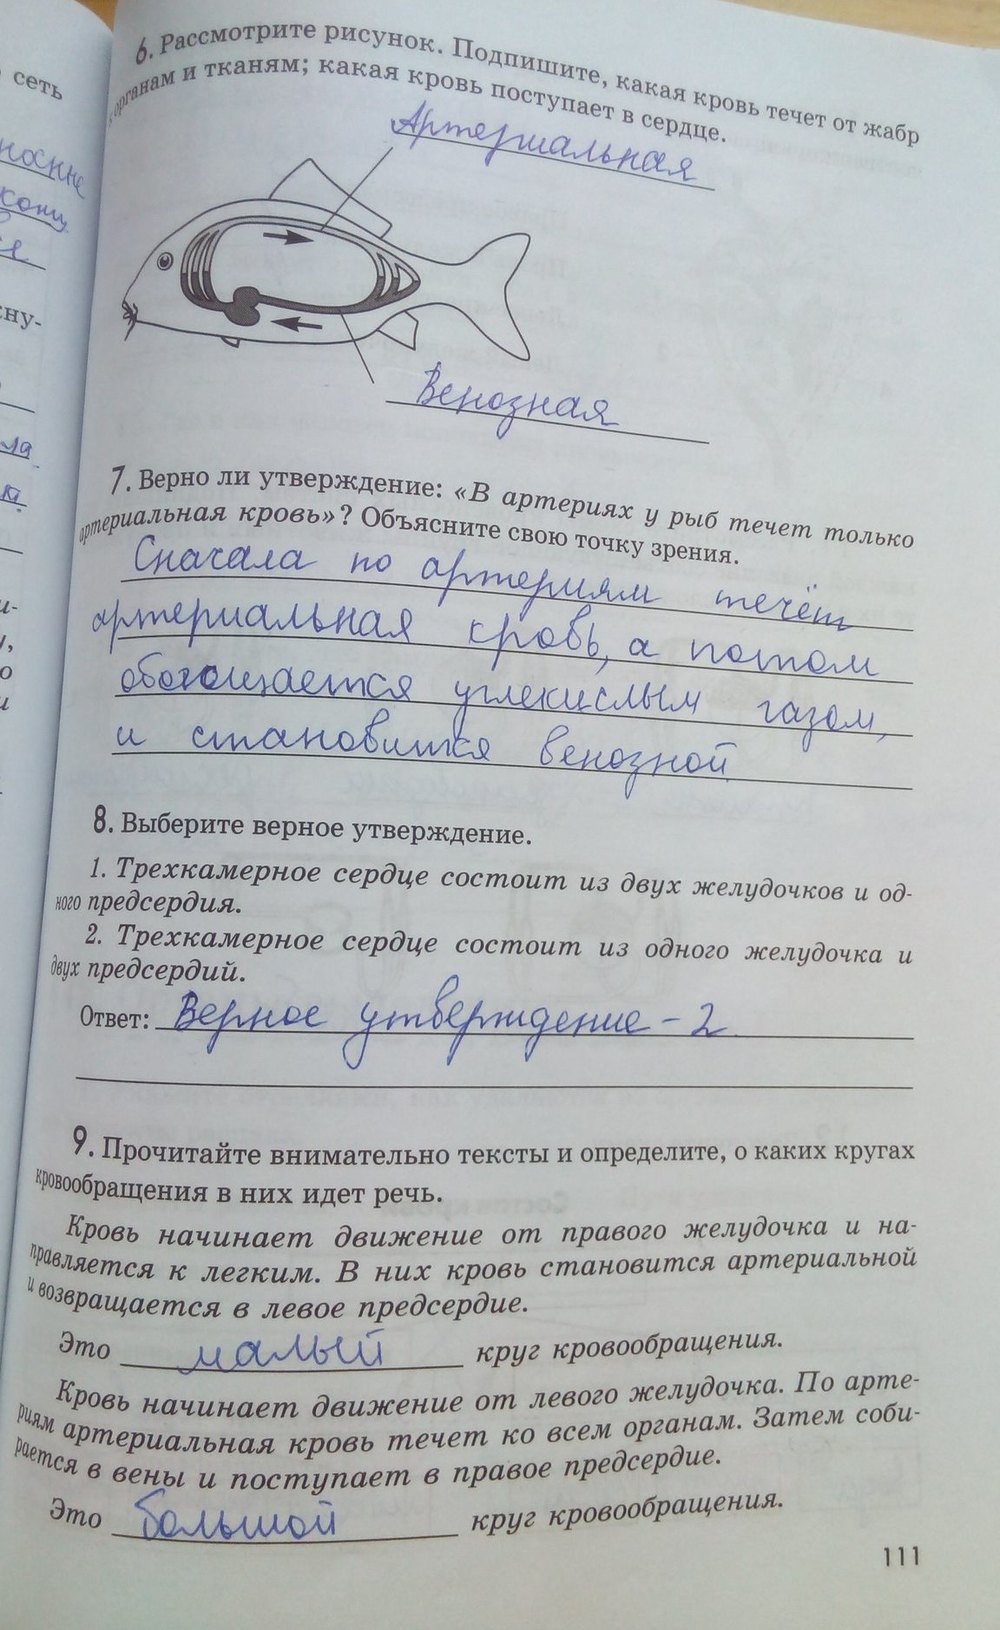 сеть
6. Рассмотрите рисунок. Подпишите, какая кровь течет от жабр
к органам и тканям; какая кровь поступает в сердце.
Артериальная
Венозная
7. Верно ли утверждение: «В артериях у рыб течет только
артериальная кровь»? Объясните свою точку зрения.
Сначала по артериям течёт
артериальная кровь, а потом
обогощается углекислым газом,
и становится венозной
8. Выберите верное утверждение.
1. Трехкамерное сердце состоит из двух желудочков и од-
ного предсердия.
2. Трехкамерное сердце состоит из одного желудочка и
двух предсердий.
Ответ: Верное утверждение - 2
9. Прочитайте внимательно тексты и определите, о каких кругах
кровообращения в них идет речь.
Кровь начинает движение от правого желудочка и на-
правляется к легким. В них кровь становится артериальной
и возвращается в левое предсердие.
Это малый круг кровообращения.
Кровь начинает движение от левого желудочка. По арте-
риям артериальная кровь течет ко всем органам. Затем соби-
рается в вены и поступает в правое предсердие.
Это большой круг кровообращения.
111